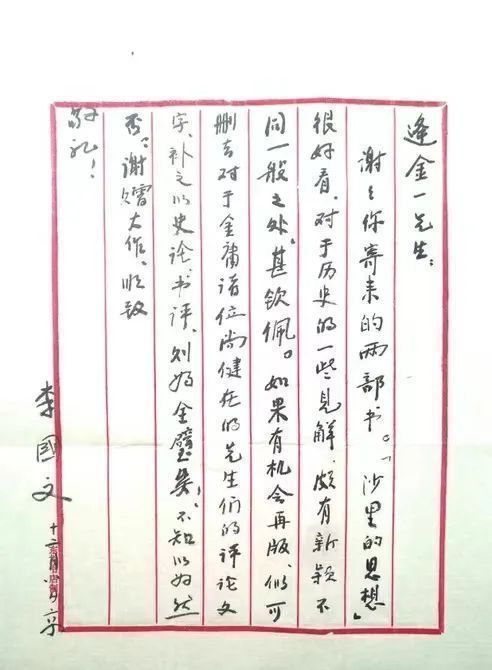 逄金一先生：
谢谢你寄来的两部书。「沙里的思想」
很好看，对于历史的一些见解，颇有新颖不
同一般之处，甚钦佩。如果有机会再版，似可
删去对于金庸诸位尚健在的先生们的评论文
字，补之以史论、书评，则好全璧矣！不知以为然
否？谢赠大作。顺致
敬礼！
李國文
十二月